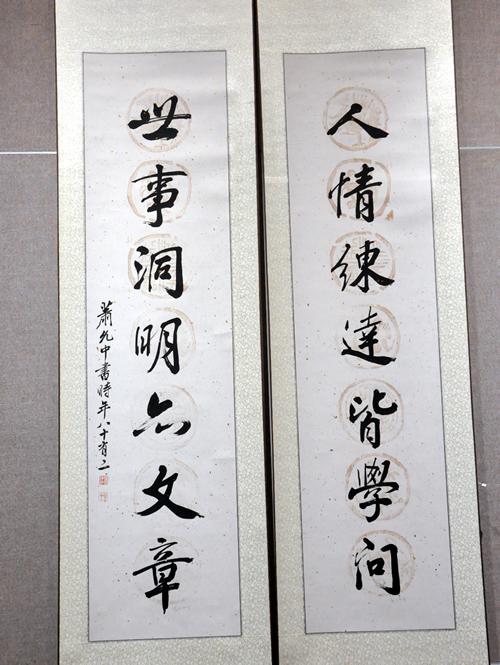 人情練達皆學問
世事洞明亦文章
蕭允中書時年八十有二